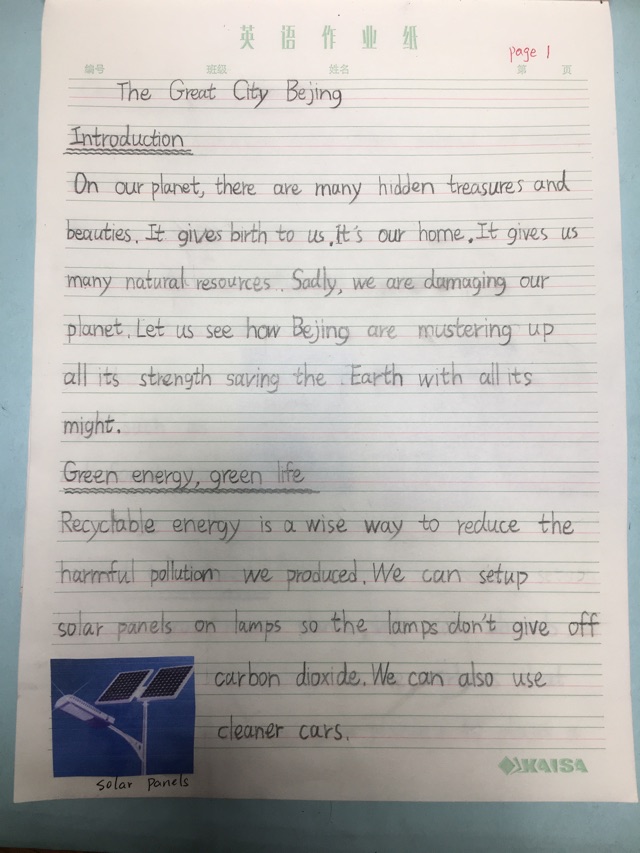 英语作业纸
page 1
编号 班级 姓名 第 页
The Great City Bejing
Introduction
On our planet, there are many hidden treasures and
beauties. It gives birth to us, It's our home. It gives us
many natural resources. Sadly, we are damaging our
planet. Let us see how Bejing are mustering up
all its strength saving the Earth with all its
might.
Green energy, green life
Recyclable energy is a wise way to reduce the
harmful pollution we produced. We can setup
solar panels on lamps so the lamps don't give off
carbon dioxide. We can also use
cleaner cars.
solar panels
KAISA